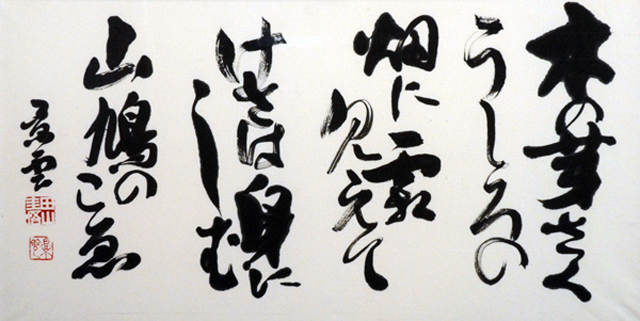 木の芽さく
うしろの
畑に
見えて
けさは身に
しむ
山鳩のこゑ
雲